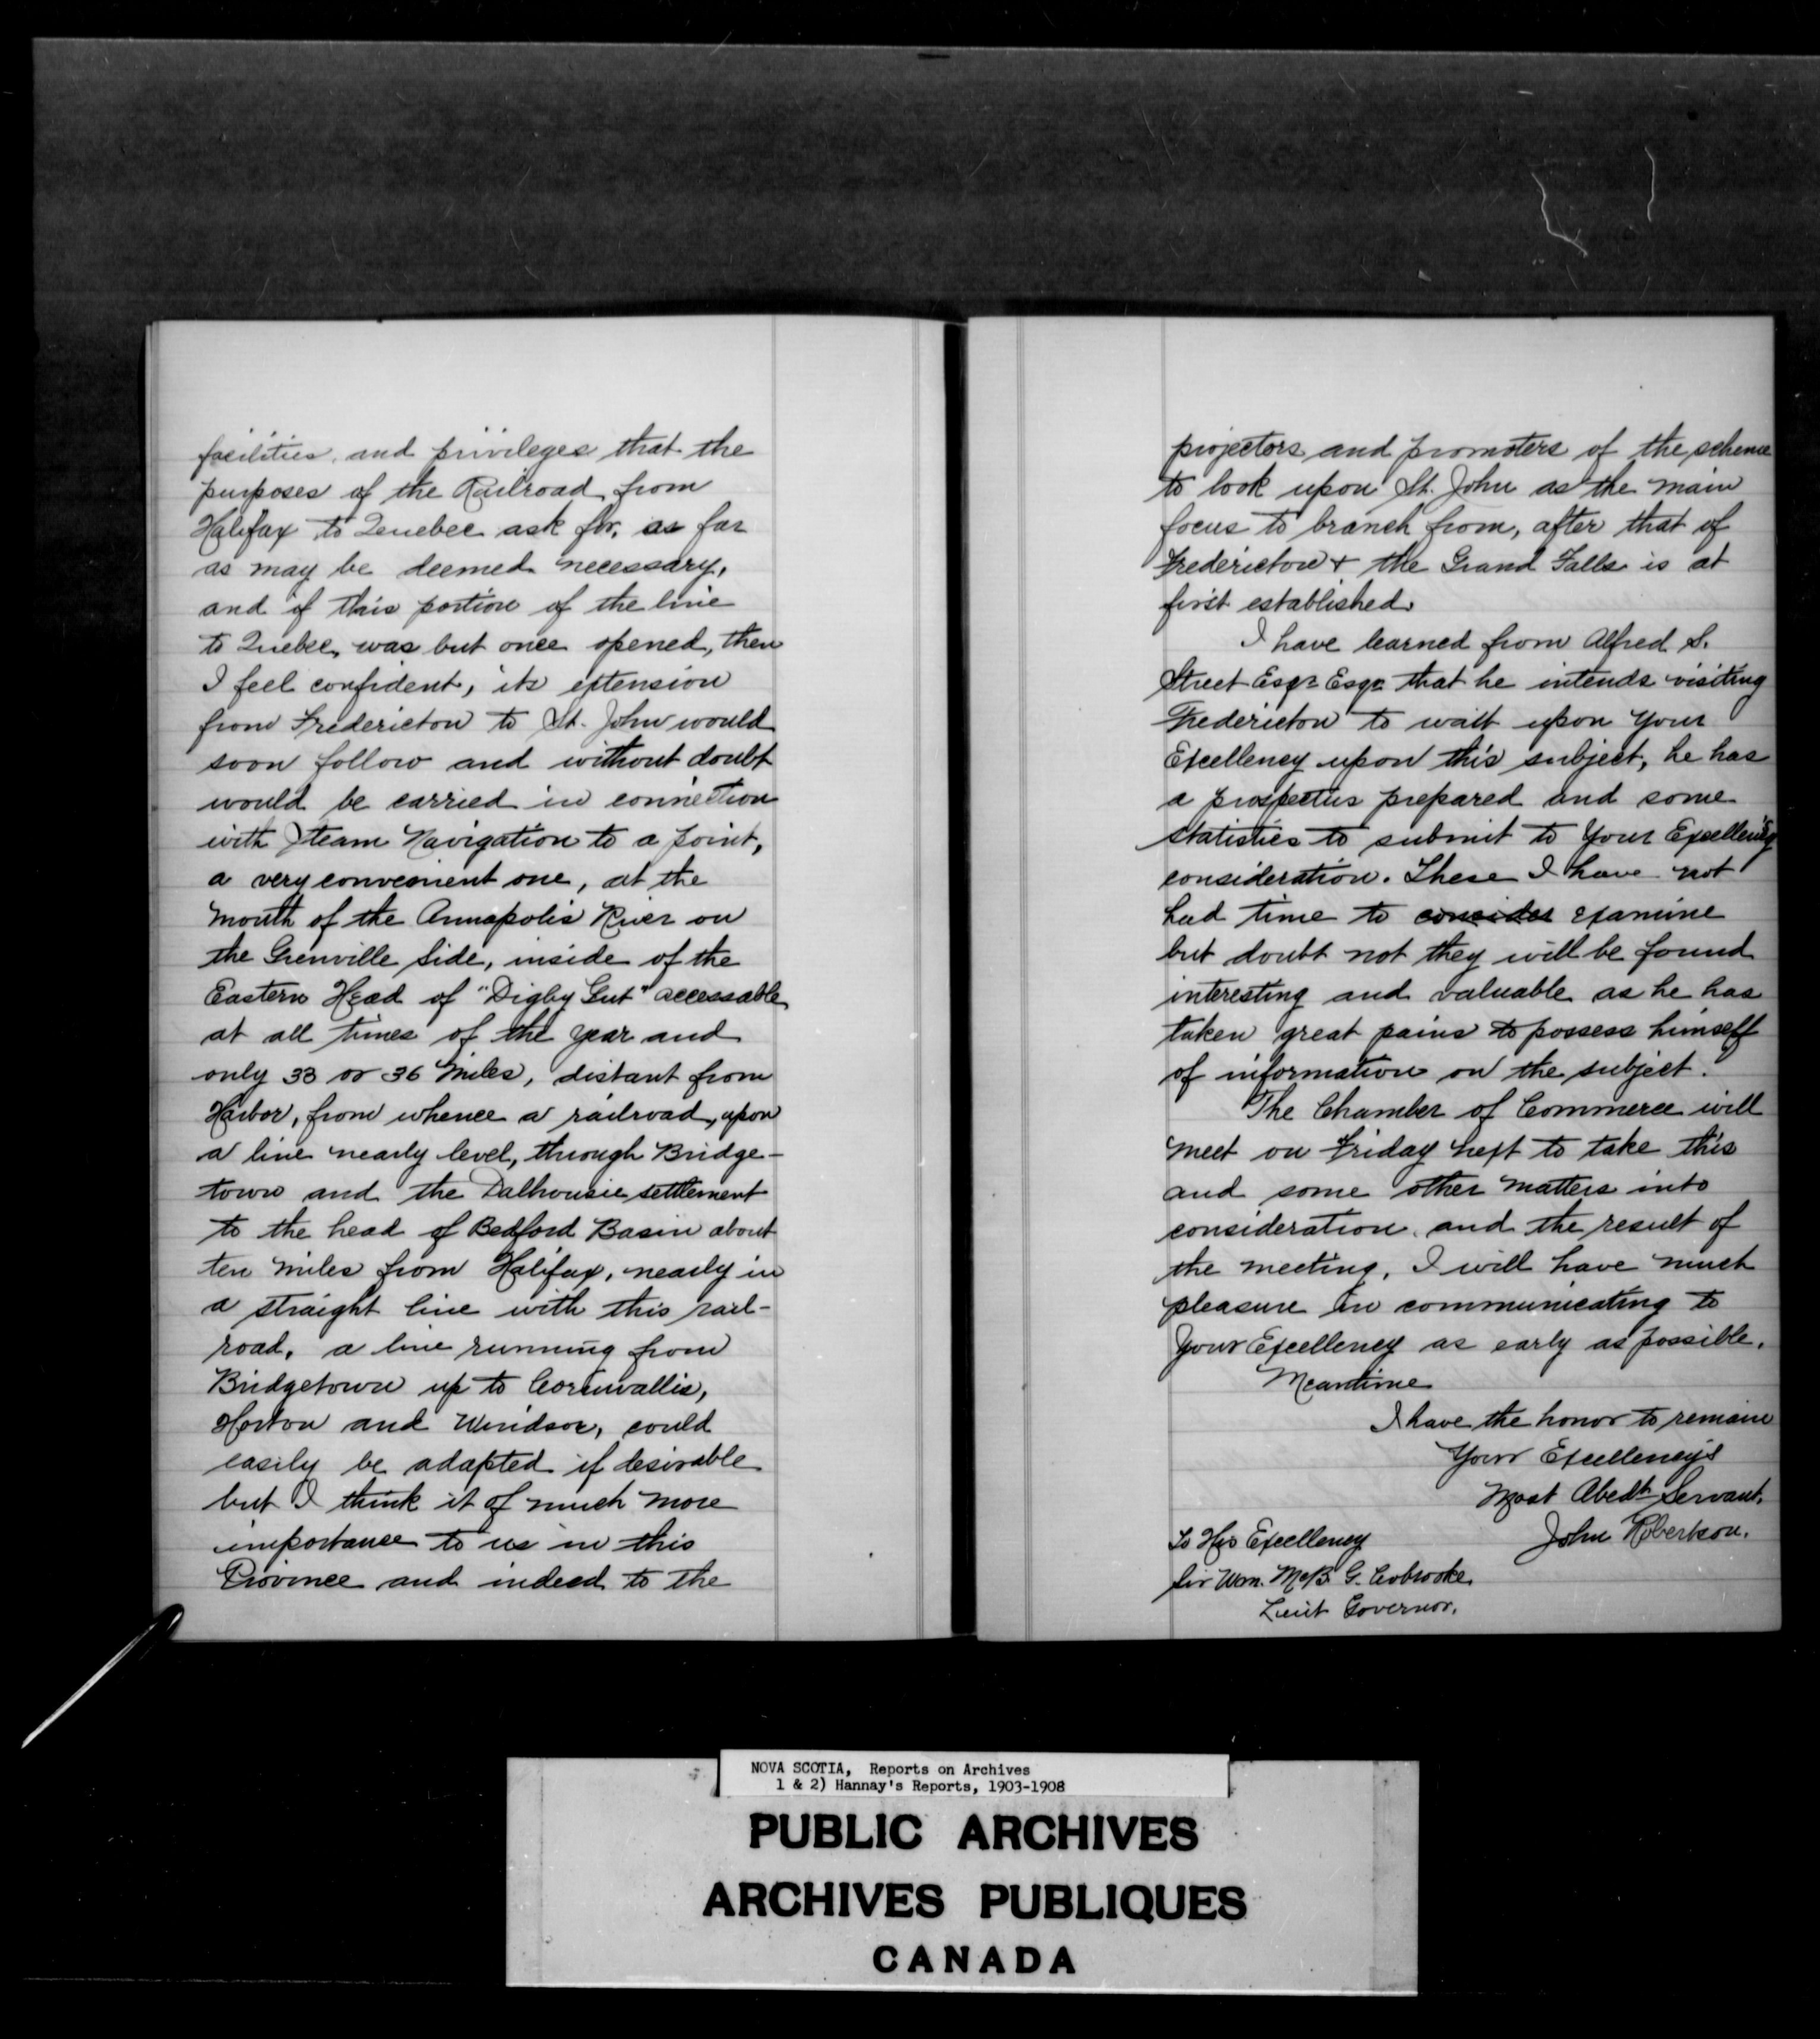 facilities, and privileges that the
purposes of the Railroad from
Halifax to Quebec ask for, as far
as may be deemed necessary,
and if this portion of the line
to Quebec, was but once opened, then
I feel confident, its extension
from Fredericton to St. John would
soon follow and without doubt
would be carried in connection
with Steam Navigation to a point,
a very convenient one, at the
mouth of the Annapolis River on
the Grenville Side, inside of the
Eastern Head of "Digby Gut" accessable
at all times of the year and
only 33 or 36 Miles, distant from
Harbor, from whence a railroad, upon
a line nearly level, through Bridge-
town and the Dalhousie settlement
to the head of Bedford Basin about
ten miles from Halifax, nearly in
a straight line with this rail-
road, a line running from
Bridgetown up to Cornwallis,
Horton and Windsor, could
easily be adapted if desirable
but I think it of much more
importance to us in this
Province and indeed to the
projectors and promoters of the scheme
to look upon St. John as the main
focus to branch from, after that of
Fredericton & the Grand Falls is at
first established.
I have learned from Alfred S.
Street Esqr Esqr that he intends visiting
Fredericton to wait upon Your
Excellency upon this subject, he has
a prospectus prepared and some
statistics to submit to Your Excellency's
consideration. These I have not
had time to consider examine
but doubt not they will be found
interesting and valuable as he has
taken great pains to possess himself
of information on the subject.
The Chamber of Commerce will
meet on Friday next to take this
and some other matters into
consideration, and the result of
the meeting, I will have much
pleasure in communicating to
Your Excellency as early as possible.
Meantime
I have the honor to remain
Your Excellency's
Most Obedt Servant,
John Robertson.
To His Excellency
Sir Wm. McB. G. Colbrooke
Lieut Governor.
NOVA SCOTIA, Reports on Archives
1 & 2) Hannay's Reports, 1903-1908
PUBLIC ARCHIVES
ARCHIVES PUBLIQUES
CANADA